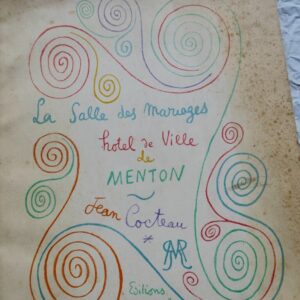 La Salle des Mariages
hotel de Ville
de
MENTON
Jean Cocteau
Editions